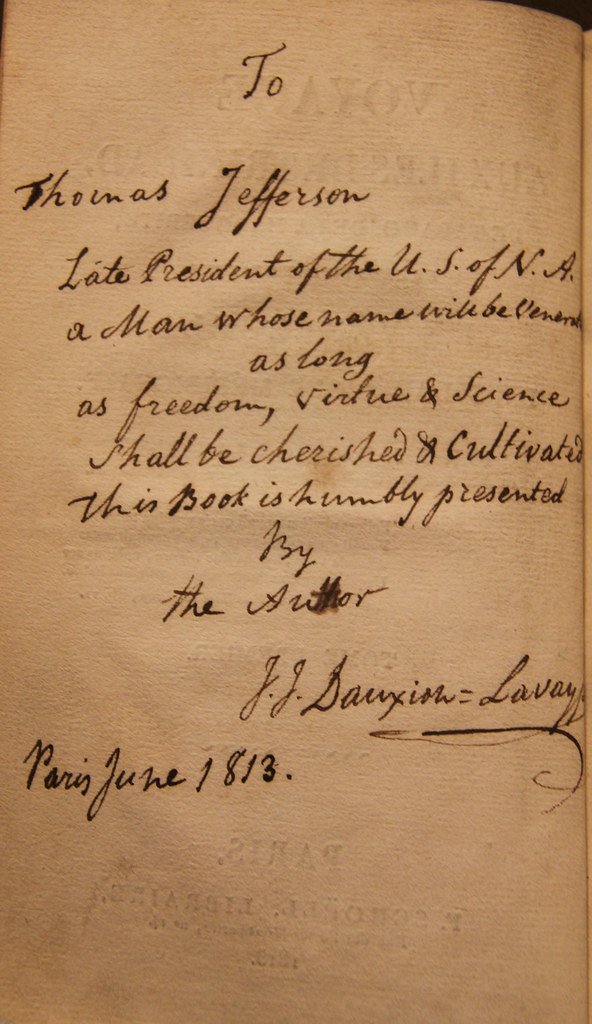 To
Thomas Jefferson
Late President of the U. S. of N. A.
a Man whose name will be
as long
as freedom, virtue & Science
Shall be cherished & Cultivated
This Book is humbly presented
By
the Author
J. J. Dauxion=
Paris June 1813.
PARIS.